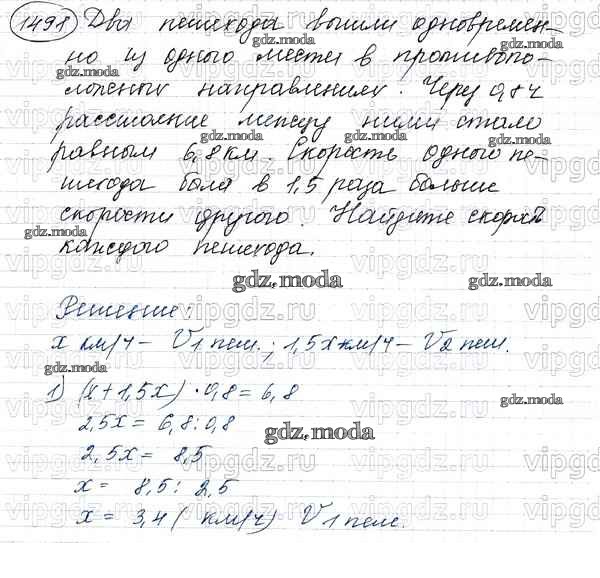 1498 Два пешехода вышли одновремен-
но из одного места в противопо-
ложных направлениях. Через 0,8 ч
расстояние между ними стало
равным 6,8 км. Скорость одного пе-
шехода была в 1,5 раза больше
скорости другого. Найдите скорость
каждого пешехода.
gdz.moda
Решение:
x км/ч – V1 пеш.; 1,5x км/ч – V2 пеш.
1) (x + 1,5x) · 0,8 = 6,8
2,5x = 6,8 : 0,8
gdz.moda
2,5x = 8,5
x = 8,5 : 2,5
x = 3,4 ( км/ч) V1 пеш.
vipgdz.ru